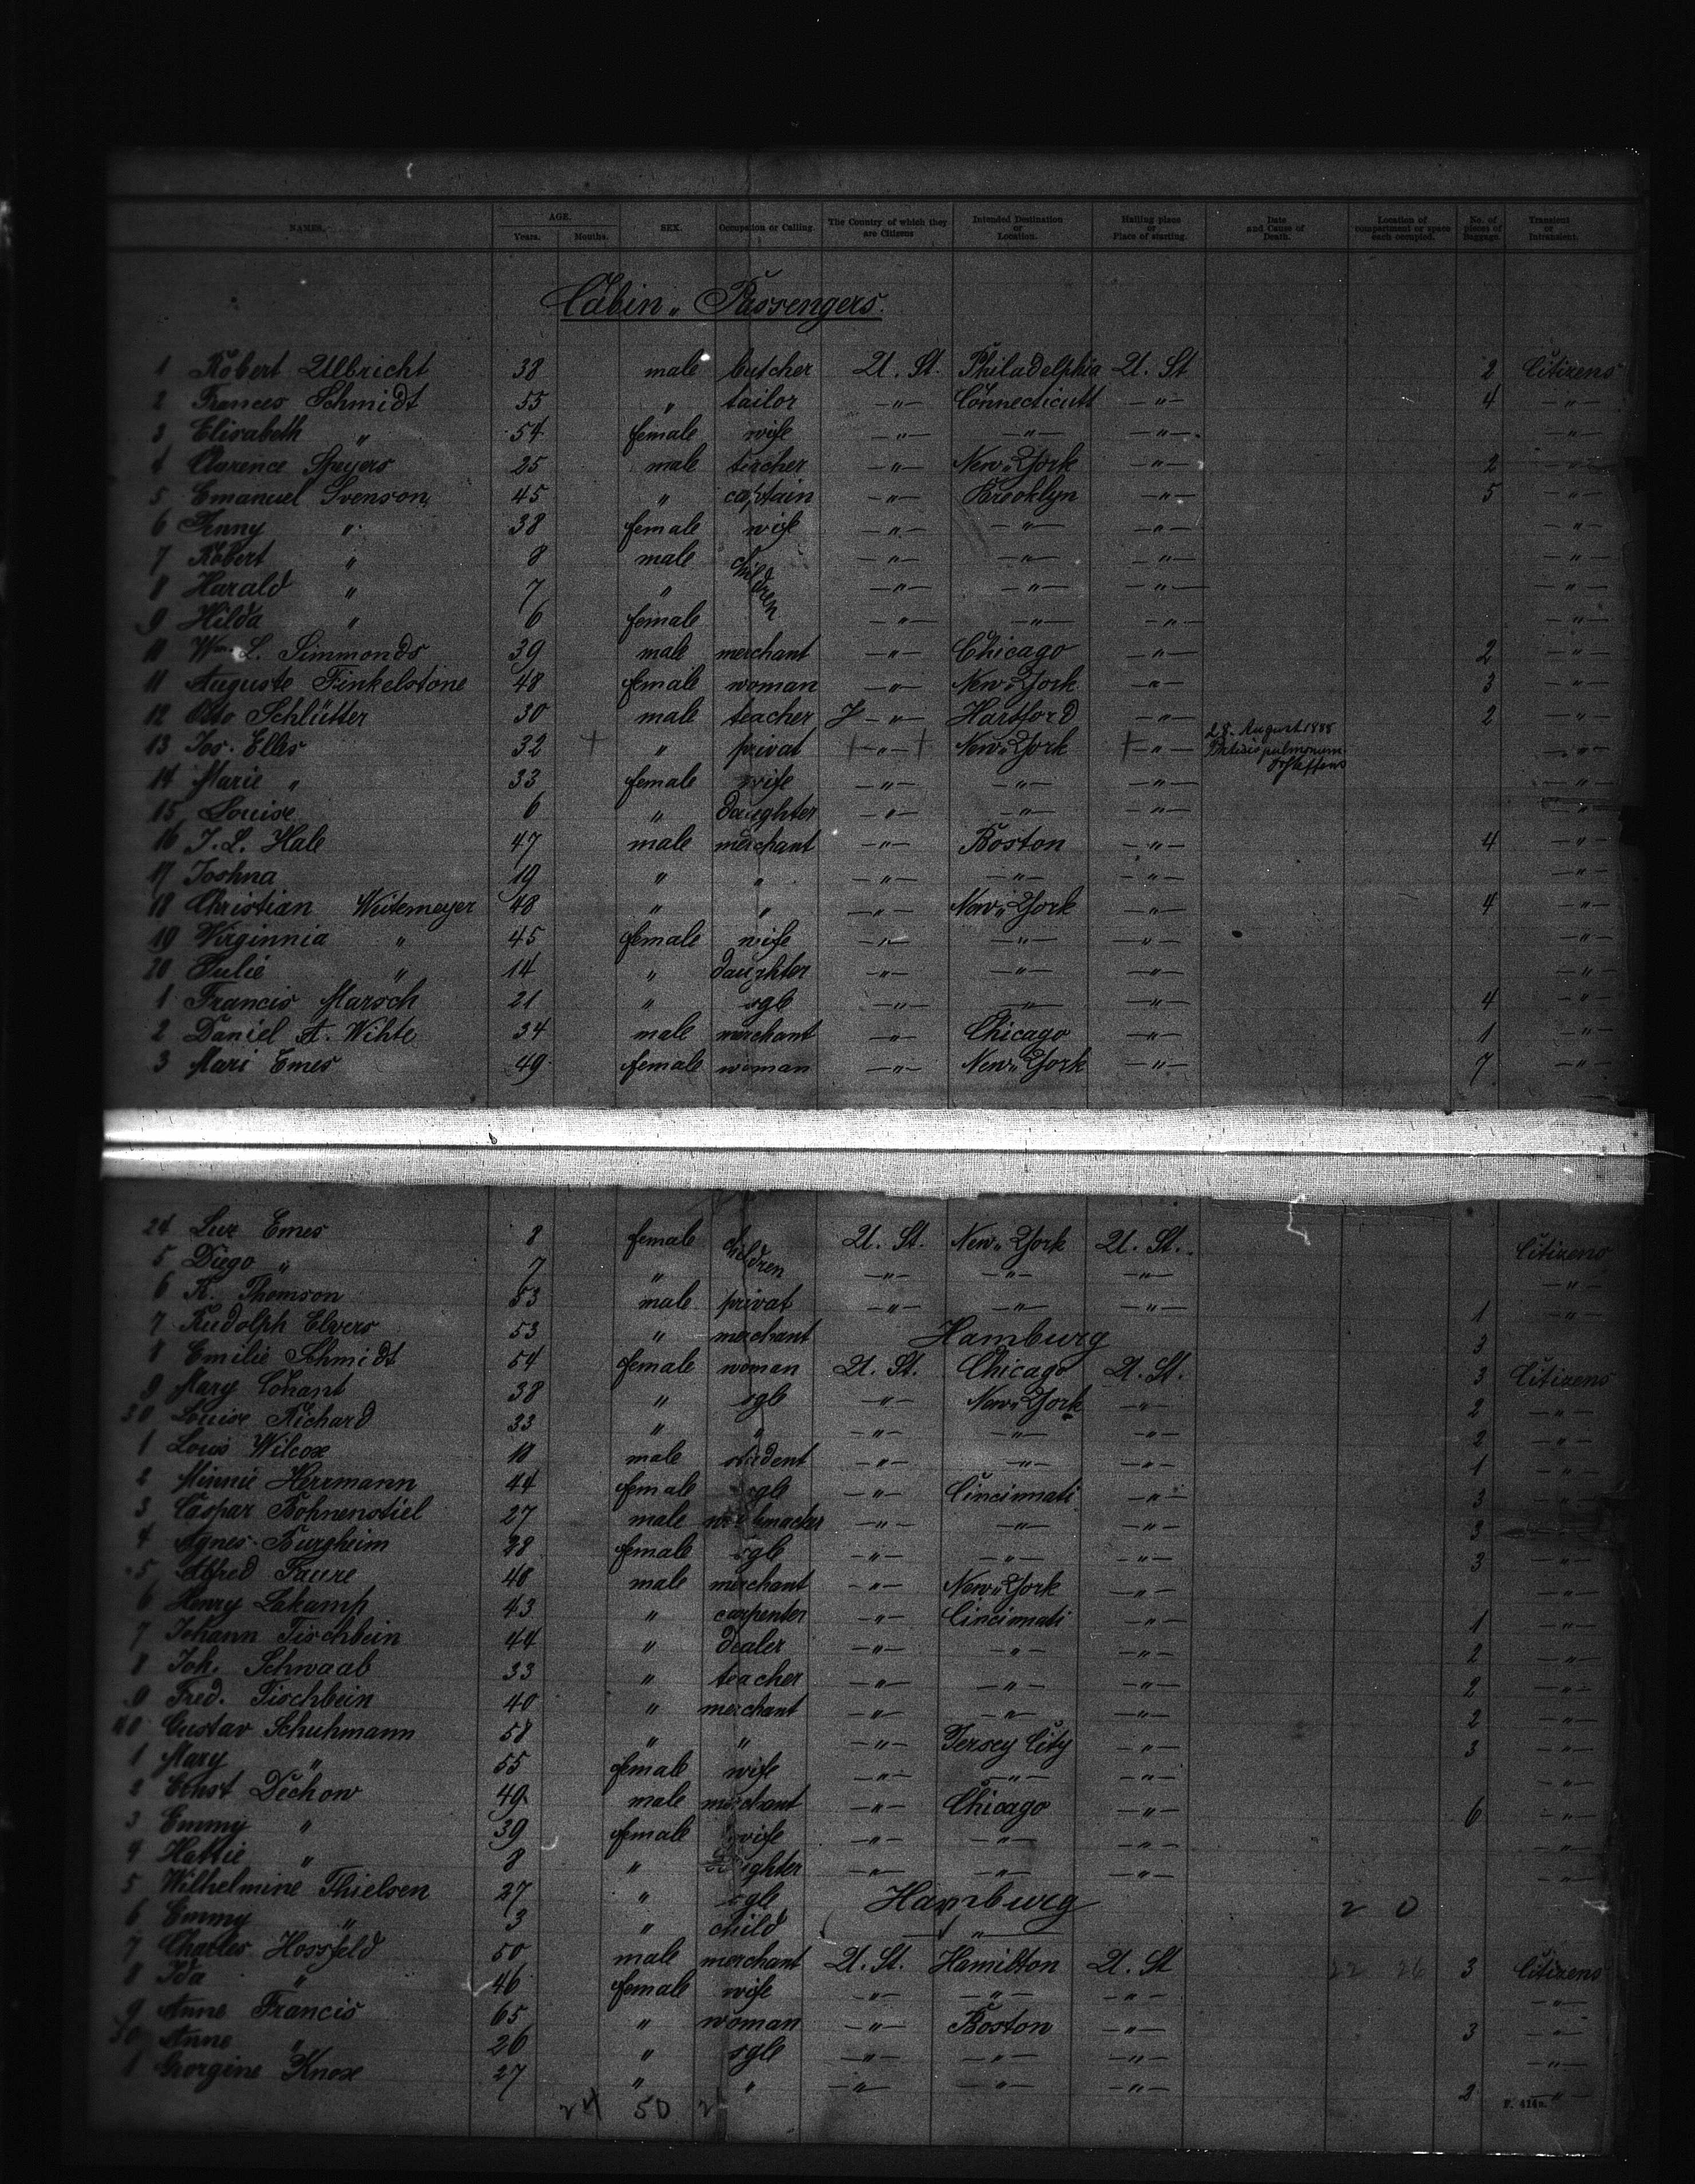 NAMES. AGE. Years. Months. SEX. Occupation or Calling. The Country of which they are Citizens Intended Destination or Location. Hailing place or Place of starting. Date and Cause of Death. Location of compartment or space each occupied. No. of pieces of Baggage. Transient or Intransient.
Cabin „ Passengers.
1 Robert Ulbricht 38 male butcher U. St. Philadelphia U. St 2 Citizens
2 Frances Schmidt 55 " tailor –"– Connecticutt –"– 4 –"–
3 Elisabeth " 54 female wife –"– –"– –"– –"–
4 Clarence Speyers 25 male teacher –"– New„York –"– 2 –"–
5 Emanuel Svenson 45 " captain –"– Brooklyn –"– 5 –"–
6 Jenny " 38 female wife –"– –"– –"– –"–
7 Robert " 8 male children –"– –"– –"– –"–
8 Harald " 7 " –"– –"– –"– –"–
9 Hilda " 6 female –"– –"– –"– –"–
10 Wm. L. Simmonds 39 male merchant –"– Chicago –"– 2 –"–
11 Auguste Finkelstone 48 female woman –"– New„York –"– 3 –"–
12 Otto Schlütter 30 male teacher –"– Hartford –"– 2 –"–
13 Jos. Elles 32 + " privat + –"– + New„York + –"– 28. August 1888 pulmonum –"–
14 Marie " 33 female wife –"– –"– –"– –"–
15 Louise 6 " daughter –"– –"– –"– –"–
16 J. L. Hale 47 male merchant –"– Boston –"– 4 –"–
17 Joohna 19 " " –"– –"– –"– –"–
18 Christian Weitemeyer 48 " " –"– New„York –"– 4 –"–
19 Virginnia " 45 female wife –"– –"– –"– –"–
20 Julie " 14 " daughter –"– –"– –"– –"–
1 Francis Marsch 21 " sgle –"– –"– –"– 4 –"–
2 Daniel A. Wihte 34 male merchant –"– Chicago –"– 1 –"–
3 Mari Emes 49 female woman –"– New„York –"– 7 –"–
24 Luz Emes 8 female children U. St. New„York U. St. Citizens
5 Diego " 7 " –"– –"– –"– –"–
6 K. Thomson 53 male privat –"– –"– –"– 1 –"–
7 Rudolph Elvers 53 " merchant Hamburg 3
8 Emilie Schmidt 54 female woman U. St. Chicago U. St. 3 Citizens
9 Mary Conant 38 " sgle –"– New„York –"– 2 –"–
30 Louise Richard 33 " " –"– –"– –"– 2 –"–
1 Louis Wilcox 18 male student –"– –"– –"– 1 –"–
2 Minnie Herrmann 44 female sgle –"– Cincinnati –"– 3 –"–
3 Caspar Bohnenstiel 27 male –"– –"– –"– 3 –"–
4 Agnes Burgheim 28 female sgle –"– –"– –"– 3 –"–
5 Alfred Faure 48 male merchant –"– New„York –"– –"–
6 Henry Lakamp 43 " carpenter –"– Cincinnati –"– 1 –"–
7 Johann Tischbein 44 " dealer –"– –"– –"– 2 –"–
8 Joh. Schwaab 33 " teacher –"– –"– –"– 2 –"–
9 Fred. Tischbein 40 " merchant –"– –"– –"– 2 –"–
40 Gustav Schuhmann 58 " " –"– Jersey City –"– 3 –"–
1 Mary " 55 female wife –"– –"– –"– –"–
2 Ernst Dechow 49 male merchant –"– Chicago –"– 6 –"–
3 Emmy " 39 female wife –"– –"– –"– –"–
4 Hattie " 8 " daughter –"– –"– –"– –"–
5 Wilhelmine Thielsen 27 " sgle Hamburg 2 0
6 Emmy " 3 " child –"–
7 Charles Hossfeld 50 male merchant U. St. Hamilton U. St 22 26 3 Citizens
8 Ida " 46 female wife –"– –"– –"– –"–
9 Anne Francis 65 " woman –"– Boston –"– 3 –"–
50 Anne " 26 " sgle –"– –"– –"– –"–
1 Georgine Knox 27 " " –"– –"– –"– 2 –"–
24 50 2
F. 414a.